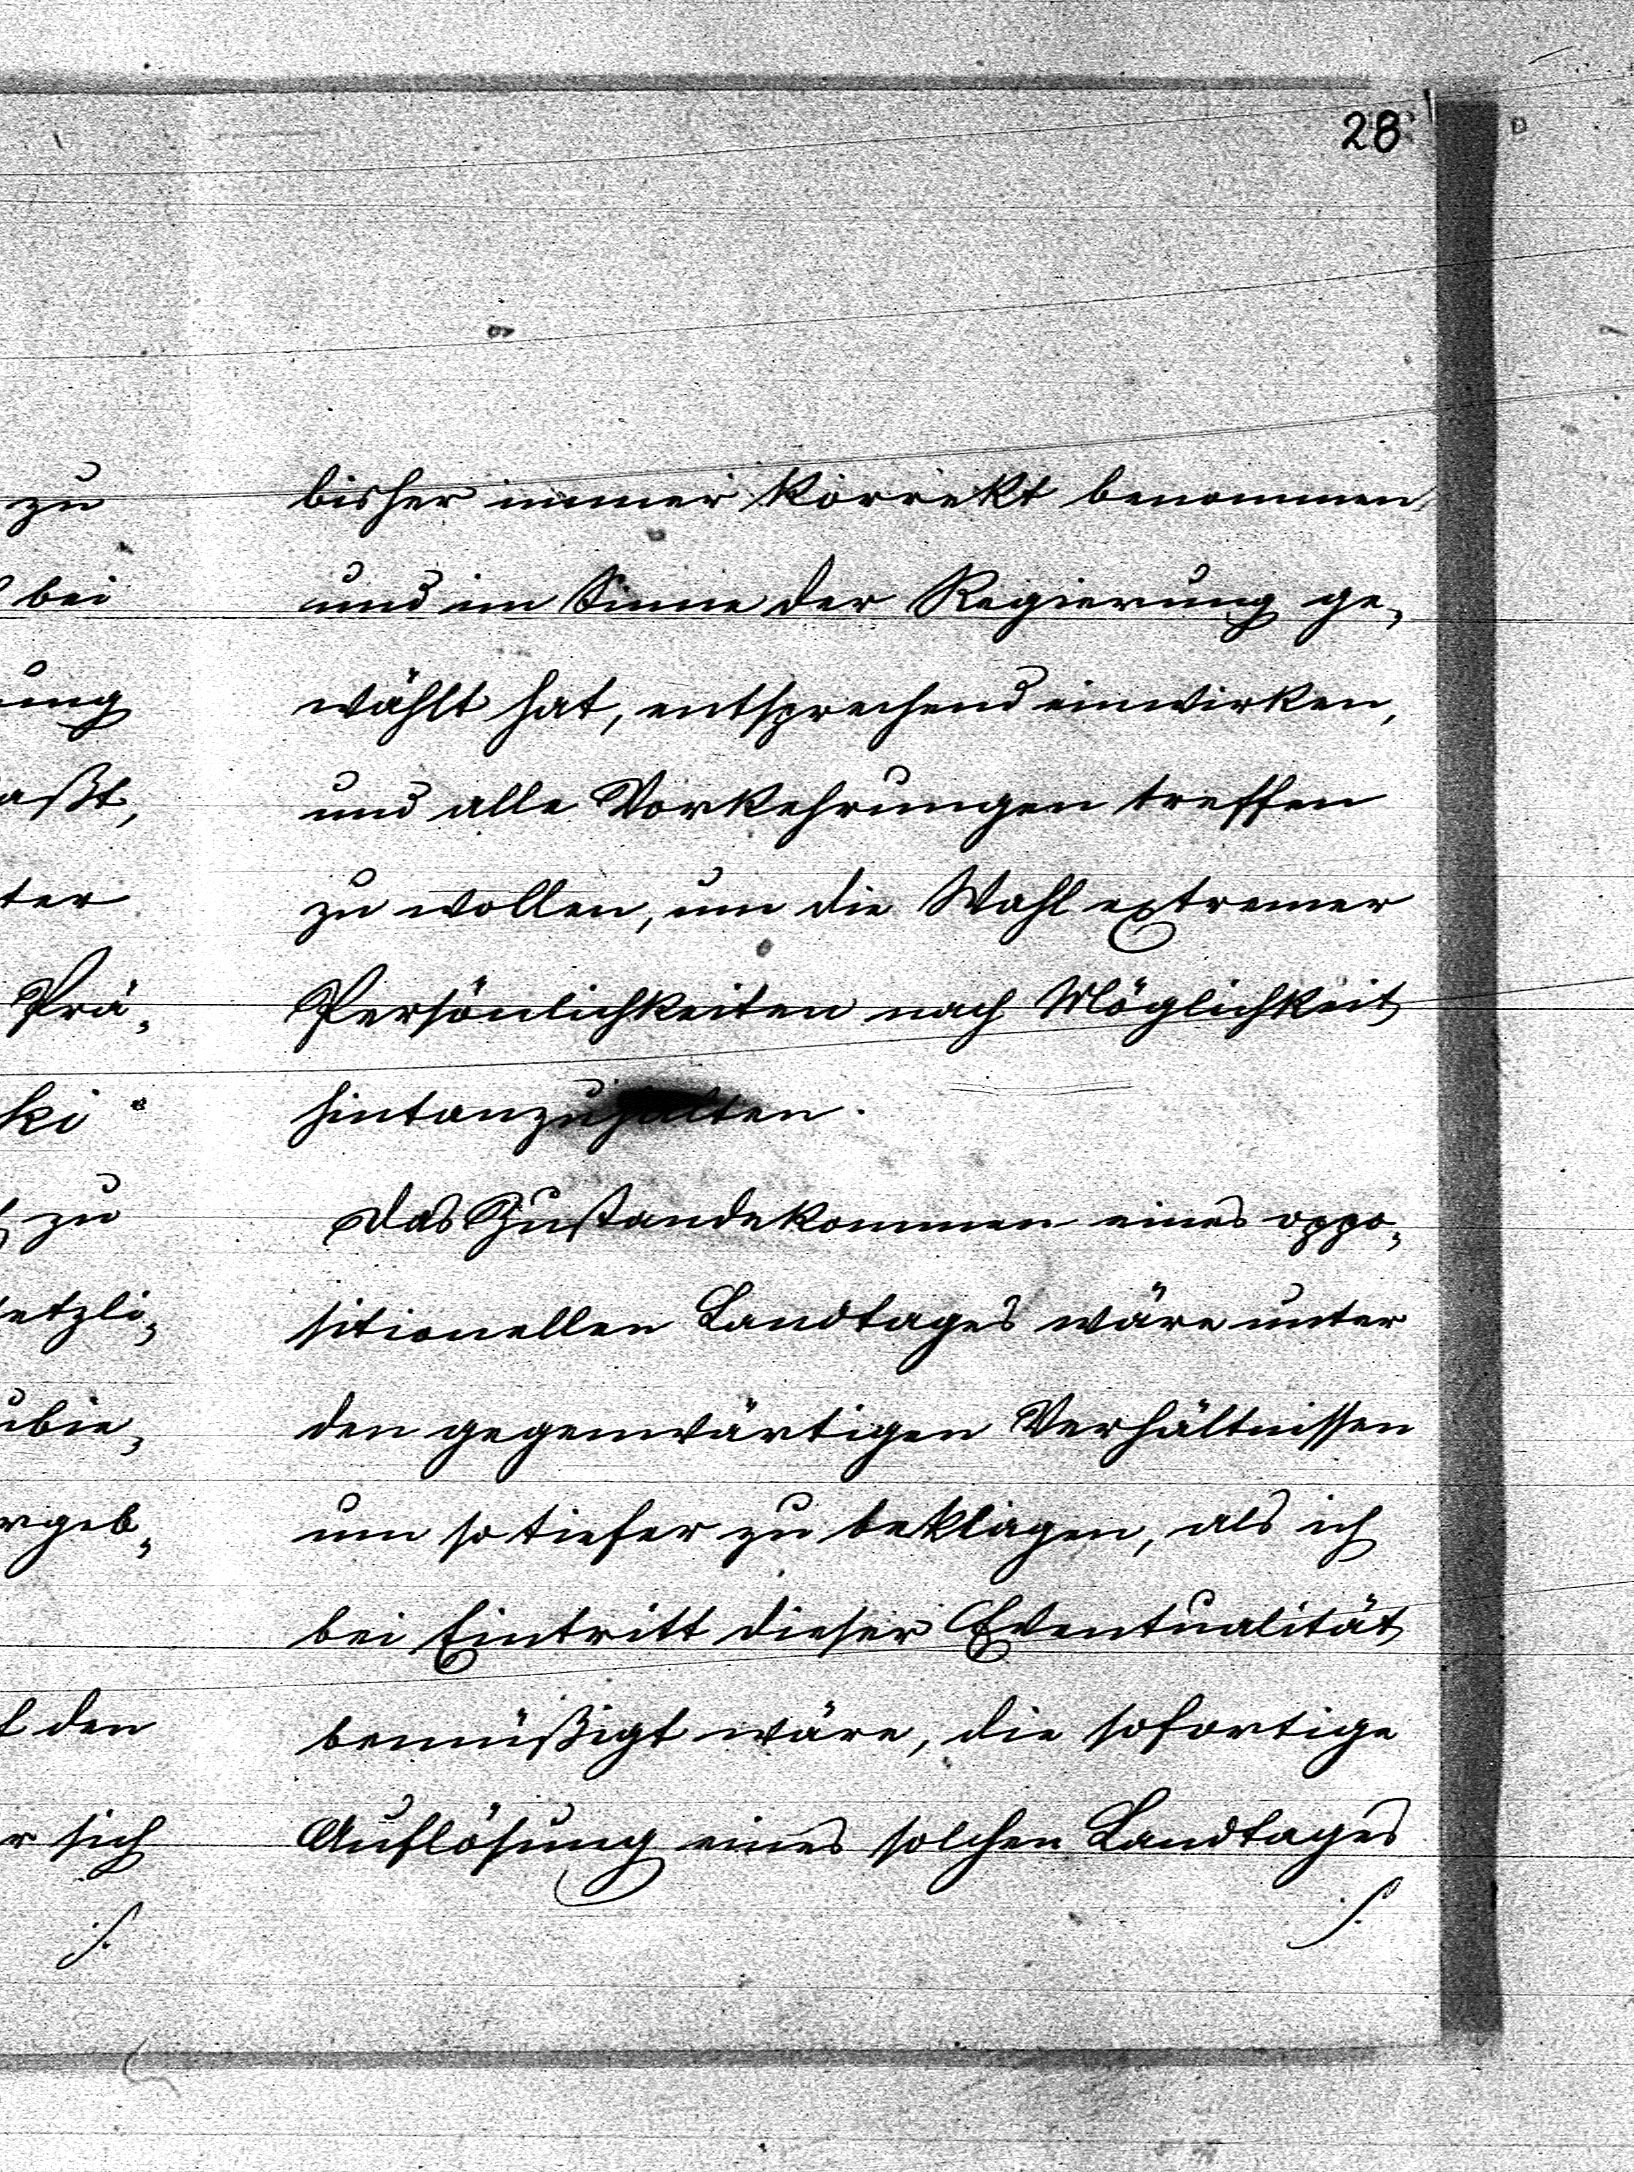 28
bisher immer korrekt benommen,
und im Sinne der Regierung ge„
wählt hat, entsprechend einwirken,
und alle Vorkehrungen treffen
zu wollen, um die Wahl extremer
Persönlichkeiten nach Möglichkeit
hintanzuhalten.
Das Zustandekommen eines oppo„
sitionellen Landtages wäre unter
den gegenwärtigen Verhältnissen
um so tiefer zu beklagen, als ich
bei Eintritt dieser Eventualität
bemüßigt wäre, die sofortige
Auflösung eines solchen Landtages
./.
zu
bei
ung
aßt,
ter
Prä„
ki
zu
etzli„
ubie„
rgeb„
den
r sich
./.